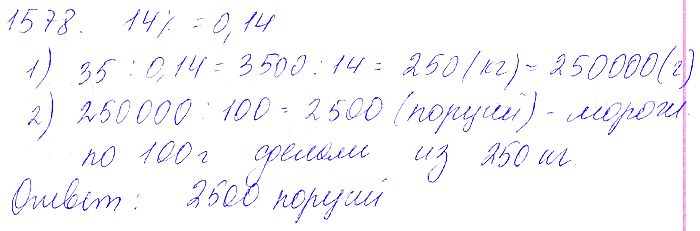 1578. 14% = 0,14
1) 35 : 0,14 = 3500 : 14 = 250 (кг) = 250000 (г)
2) 250000 : 100 = 2500 (порций) - морож.
по 100 г сделали из 250 кг
Ответ: 2500 порций